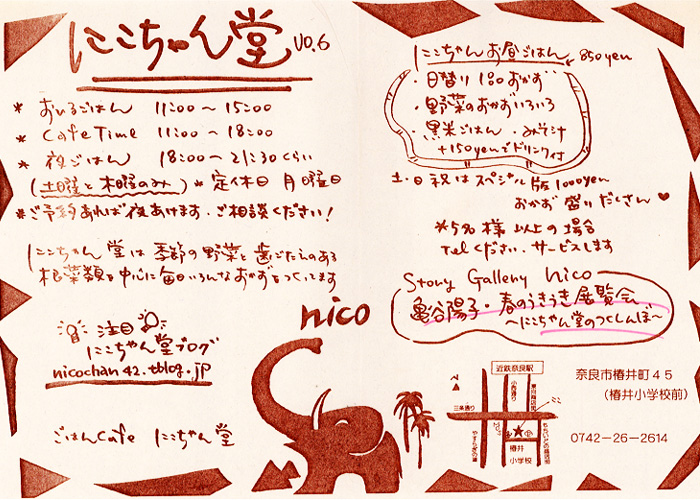 にこちゃん堂 VO.6
* おひるごはん 11:00〜15:00
* Cafe Time 11:00〜18:00
* 夜ごはん 18:00〜21:30くらい
(土曜と木曜のみ) * 定休日 月曜日
*ご予約あれば夜あけます。ご相談ください!
にこちゃん堂は季節の野菜と歯ごたえのある
根菜類を中心に毎日いろんなおかずをつくってます
注目
にこちゃん堂ブログ
nicochan42.tblog.jp
ごはんCafe にこちゃん堂
にこちゃんお昼ごはん 850yen
・日替り 1品おかず
・野菜のおかずいろいろ
・黒米ごはん ・みそ汁
+150yenでドリンク付
土・日・祝はスペシャル版1000yen
おかず盛りだくさん♥
*5名様以上の場合
Telください。サービスします
Story Gallery nico
亀谷陽子・春のうきうき展覧会
〜にこちゃん堂のつくしんぼ〜
nico
近鉄奈良駅
小西通り
三条通り
やすらぎの道
もちいどの商店街
椿井
小学校
奈良市椿井町45
(椿井小学校前)
0742-26-2614